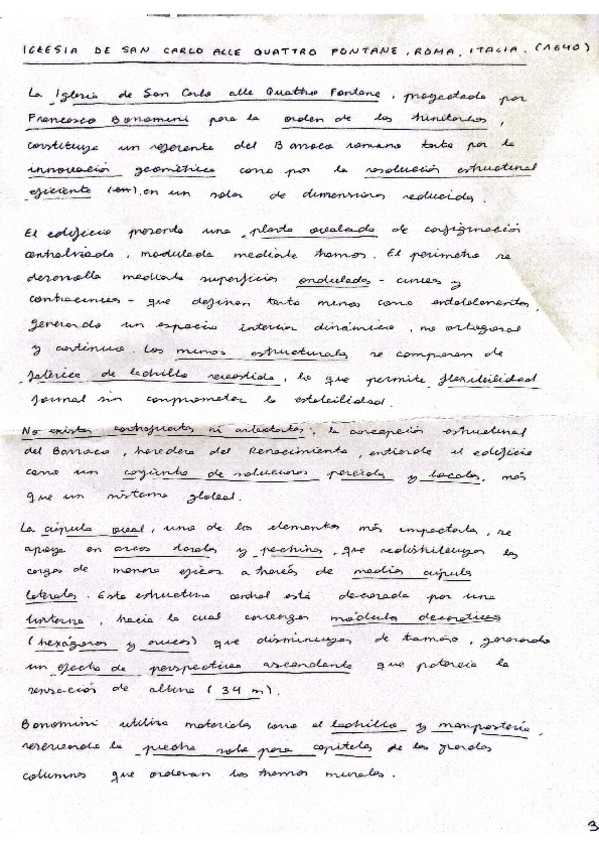 IGLESIA DE SAN CARLO ALLE QUATTRO FONTANE, ROMA, ITALIA. (1640)
La Iglesia de San Carlo alle Quattro Fontane, proyectada por
Francesco Borromini para la orden de los trinitarios,
constituye un referente del Barroco romano tanto por la
innovación geométrica como por la resolución estructural
eficiente en un solar de dimensiones reducidas.
El edificio presenta una planta ovalada de configuración
centralizada, modulada mediante tramos. El perímetro se
desarrolla mediante superficies onduladas - curvas y
contracurvas - que definen tanto muros como entablamentos,
generando un espacio interior dinámico, no ortogonal
y continuo. Los muros estructurales se componen de
fábrica de ladrillo revestida, lo que permite flexibilidad
formal sin comprometer la estabilidad.
No existen contrafuertes ni arbotantes, la concepción estructural
del Barroco, heredera del Renacimiento, entiende el edificio
como un conjunto de soluciones parciales y locales, más
que un sistema global.
La cúpula oval, uno de los elementos más impactantes, se
apoya en arcos torales y pechinas, que redistribuyen las
cargas de manera eficaz a través de medias cúpulas
laterales. Esta estructura central está decorada por una
linterna, hacia la cual convergen módulos decorativos
(hexágonos y cruces) que disminuyen de tamaño, generando
un efecto de perspectiva ascendente que potencia la
sensación de altura (34 m).
Borromini utiliza materiales como el ladrillo y mampostería,
reservando la piedra solo para capiteles de las grandes
columnas que ordenan los tramos murales.
3